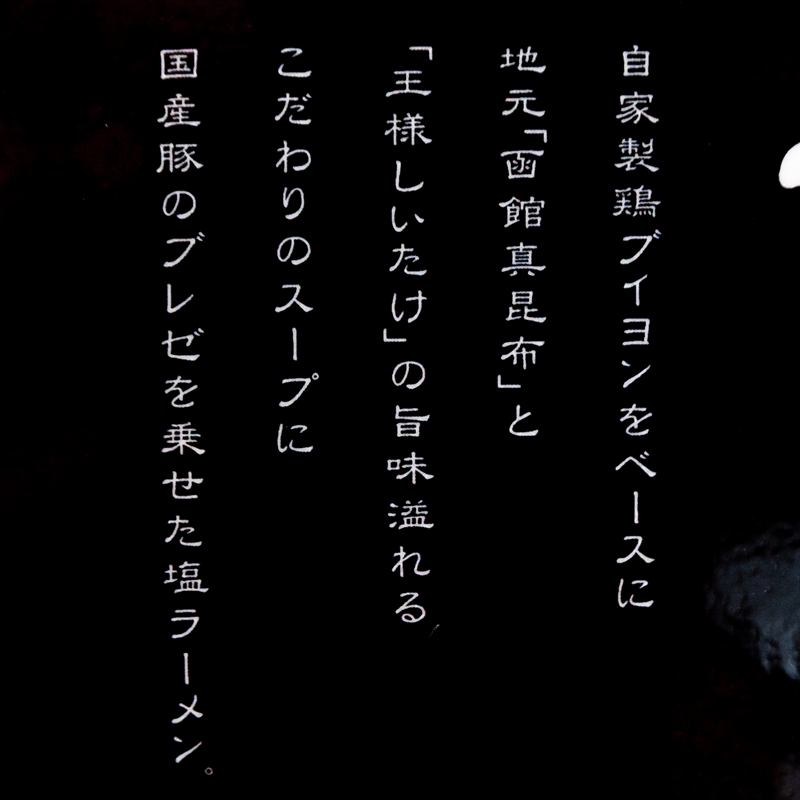 自家製鶏ブイヨンをベースに
地元「函館真昆布」と
「王様しいたけ」の旨味溢れる
こだわりのスープに
国産豚のブレゼを乗せた塩ラーメン。